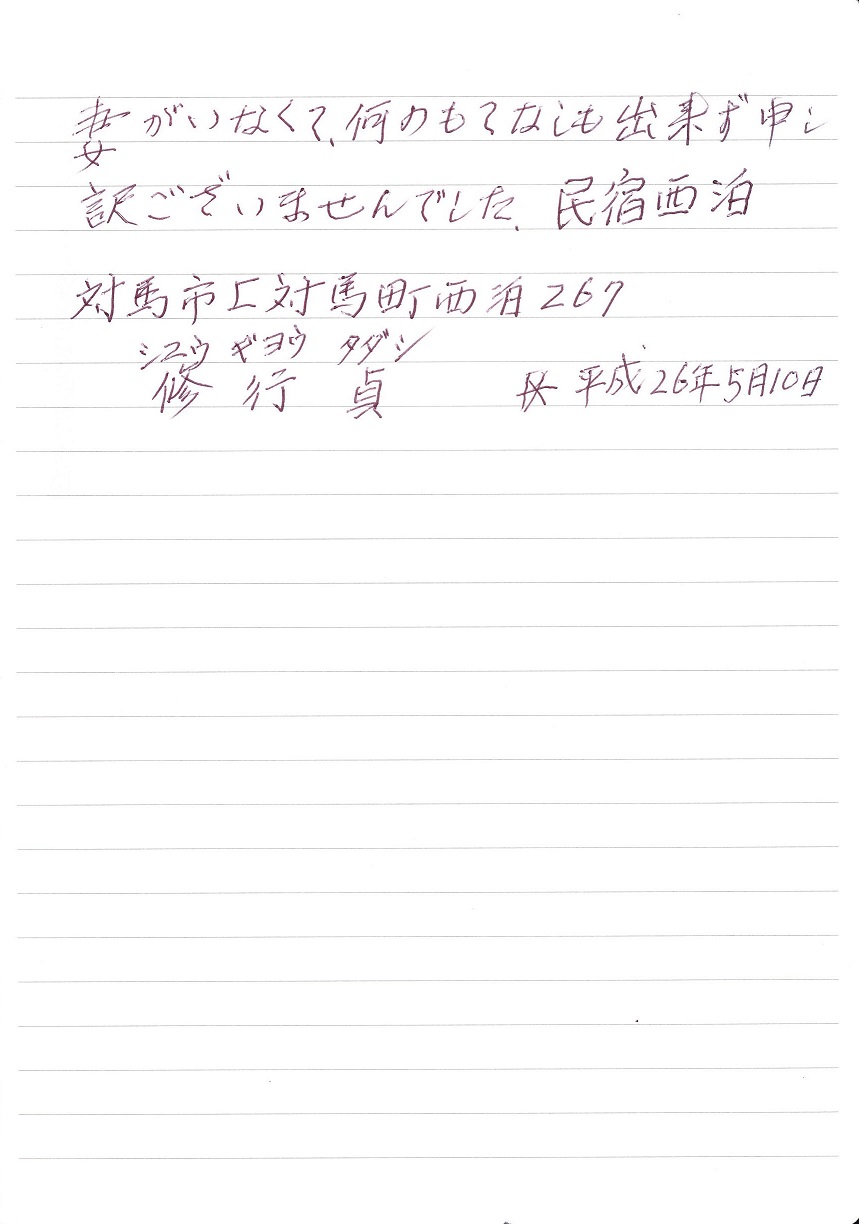 妻がいなくて、何のもてなしも出来ず申し
訳ございませんでした、民宿西泊
対馬市上対馬町西泊267
シユウ ギヨウ タダシ
修行 貞 平成26年5月10日